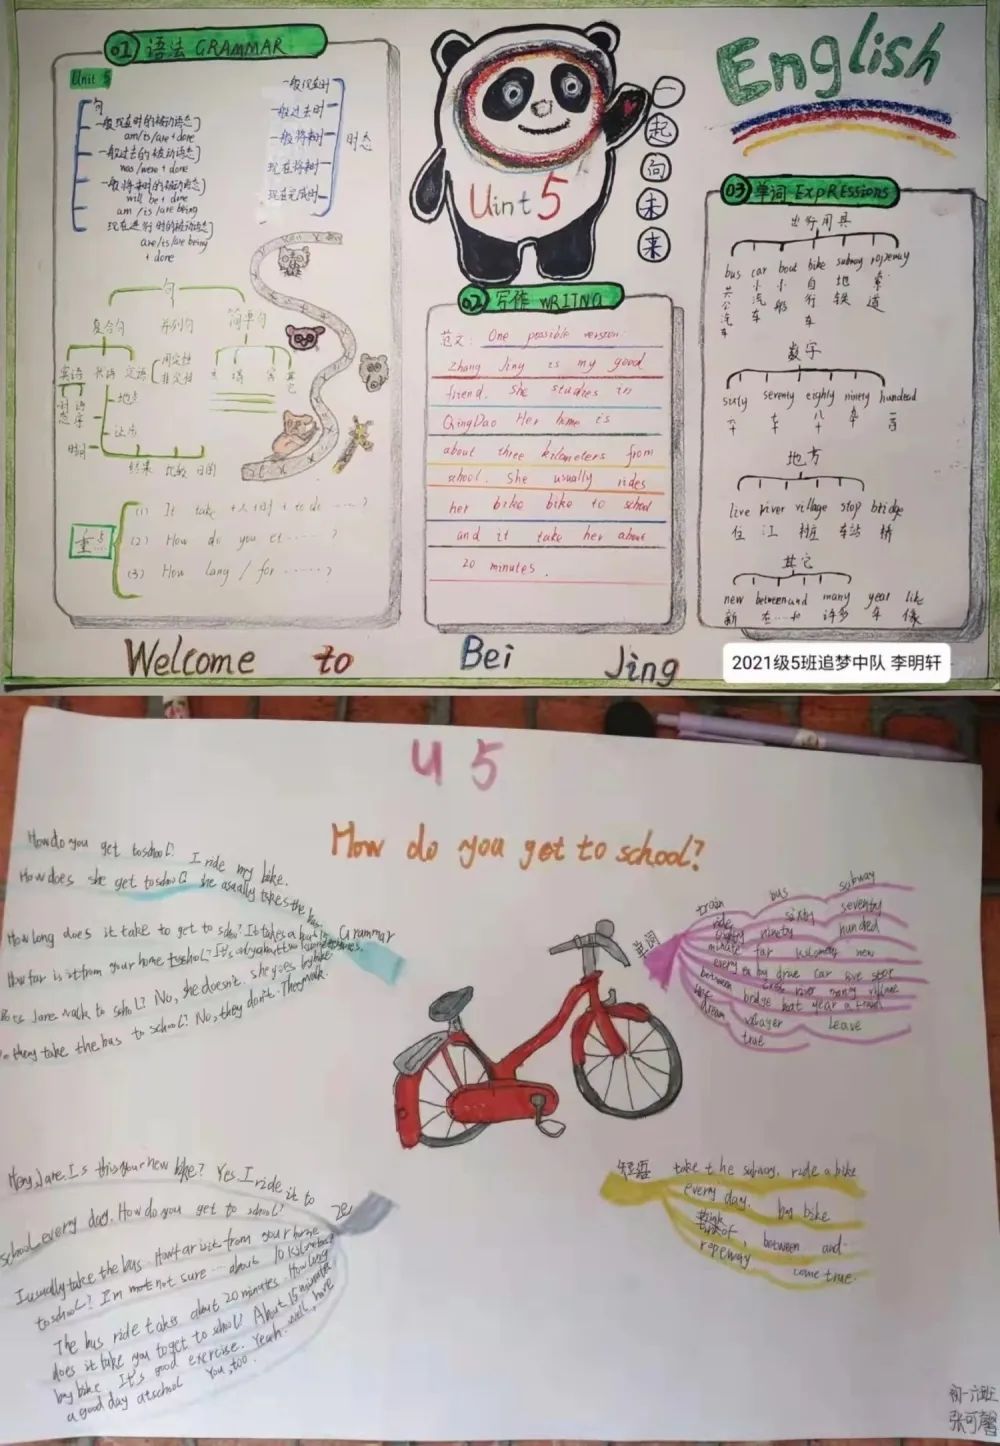 01 语法 GRAMMAR
Unit 5
句
一般现在时的被动语态
am/is/are + done
一般过去的被动语态
was/were + done
一般将来时的被动语态
will be + done
am/is/are being
现在进行时的被动语态
are/is/are being
+ done
一般现在时
一般过去时
一般将来时
现在将来时
现在完成时
时态
句
复合句 并列句 简单句
宾语 状语 定语
时态 语序
地点
让步
时间
结果 比较 目的
重点
(1) It take +人+时+ to do ……?
(2) How do you et ……?
(3) How lang / for ……?
Uint 5
一起向未来
02 写作 WRITING
范文: One possible version:
Zhang Jing is my good
friend. She studies in
QingDao Her home is
about three kilometers from
school. She usually rides
her bike bike to school
and it take her about
20 minutes.
English
03 单词 ExpREssions
出行用具
bus car boat bike subway ropeway
公共汽车 小汽车 小船 自行车 地铁 索道
数字
sixty seventy eighty ninety hundred
地方
live river village stop bridge
住 江 村庄 车站 桥
其它
new between and many year like
新 在…和 许多 年 像
Welcome to Bei Jing
2021级5班追梦中队 李明轩
U 5
How do you get to school?
How do you get to school? I ride my bike.
How does she get to school? she usually takes the bus.
How long does it take to get to school? It takes about
Grammar
How far is it from your home to school? It's only about two kilometers.
Does Jane walk to school? No, she doesn't. she goes by bike
Do they take the bus to school? No, they don't. They walk.
单词
train bus subway
ride sixty seventy
eighty ninety hundred
minute far kilometer new
every by drive car live stop
between cross river many village
bridge boat year
dream villager leave
true
短语
take the subway. ride a bike
every day. by bike
think of, between and
ropeway come true.
2e
Hey, Jane. Is this your new bike? Yes I ride it to
school every day. How do you get to school?
I usually take the bus. How far is it from your home
to school? I'm not sure … about 10 kilometers
The bus ride takes about 20 minutes. How long
does it take you to get to school? About 15 minutes
by bike It's good exercise. Yeah. Well, have
a good day at school You, too.
初一六班
张可馨